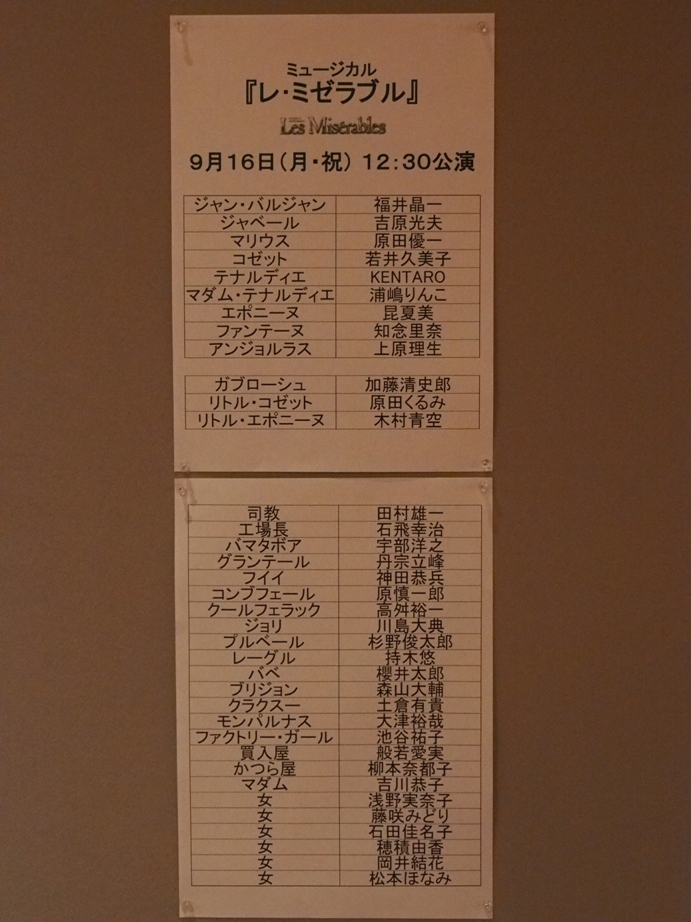 ミュージカル
『レ・ミゼラブル』
Les Misérables
9月16日(月・祝) 12:30公演
ジャン・バルジャン 福井晶一
ジャベール 吉原光夫
マリウス 原田優一
コゼット 若井久美子
テナルディエ KENTARO
マダム・テナルディエ 浦嶋りんこ
エポニーヌ 昆夏美
ファンテーヌ 知念里奈
アンジョルラス 上原理生
ガブローシュ 加藤清史郎
リトル・コゼット 原田くるみ
リトル・エポニーヌ 木村青空
司教 田村雄一
工場長 石飛幸治
バマタボア 宇部洋之
グランテール 丹宗立峰
フイイ 神田恭兵
コンブフェール 原慎一郎
クールフェラック 高舛裕一
ジョリ 川島大典
プルベール 杉野俊太郎
レーグル 持木悠
バベ 櫻井太郎
ブリジョン 森山大輔
クラクスー 土倉有貴
モンパルナス 大津裕哉
ファクトリー・ガール 池谷祐子
買入屋 般若愛実
かつら屋 柳本奈都子
マダム 吉川恭子
女 浅野実奈子
女 藤咲みどり
女 石田佳名子
女 穂積由香
女 岡井結花
女 松本ほなみ